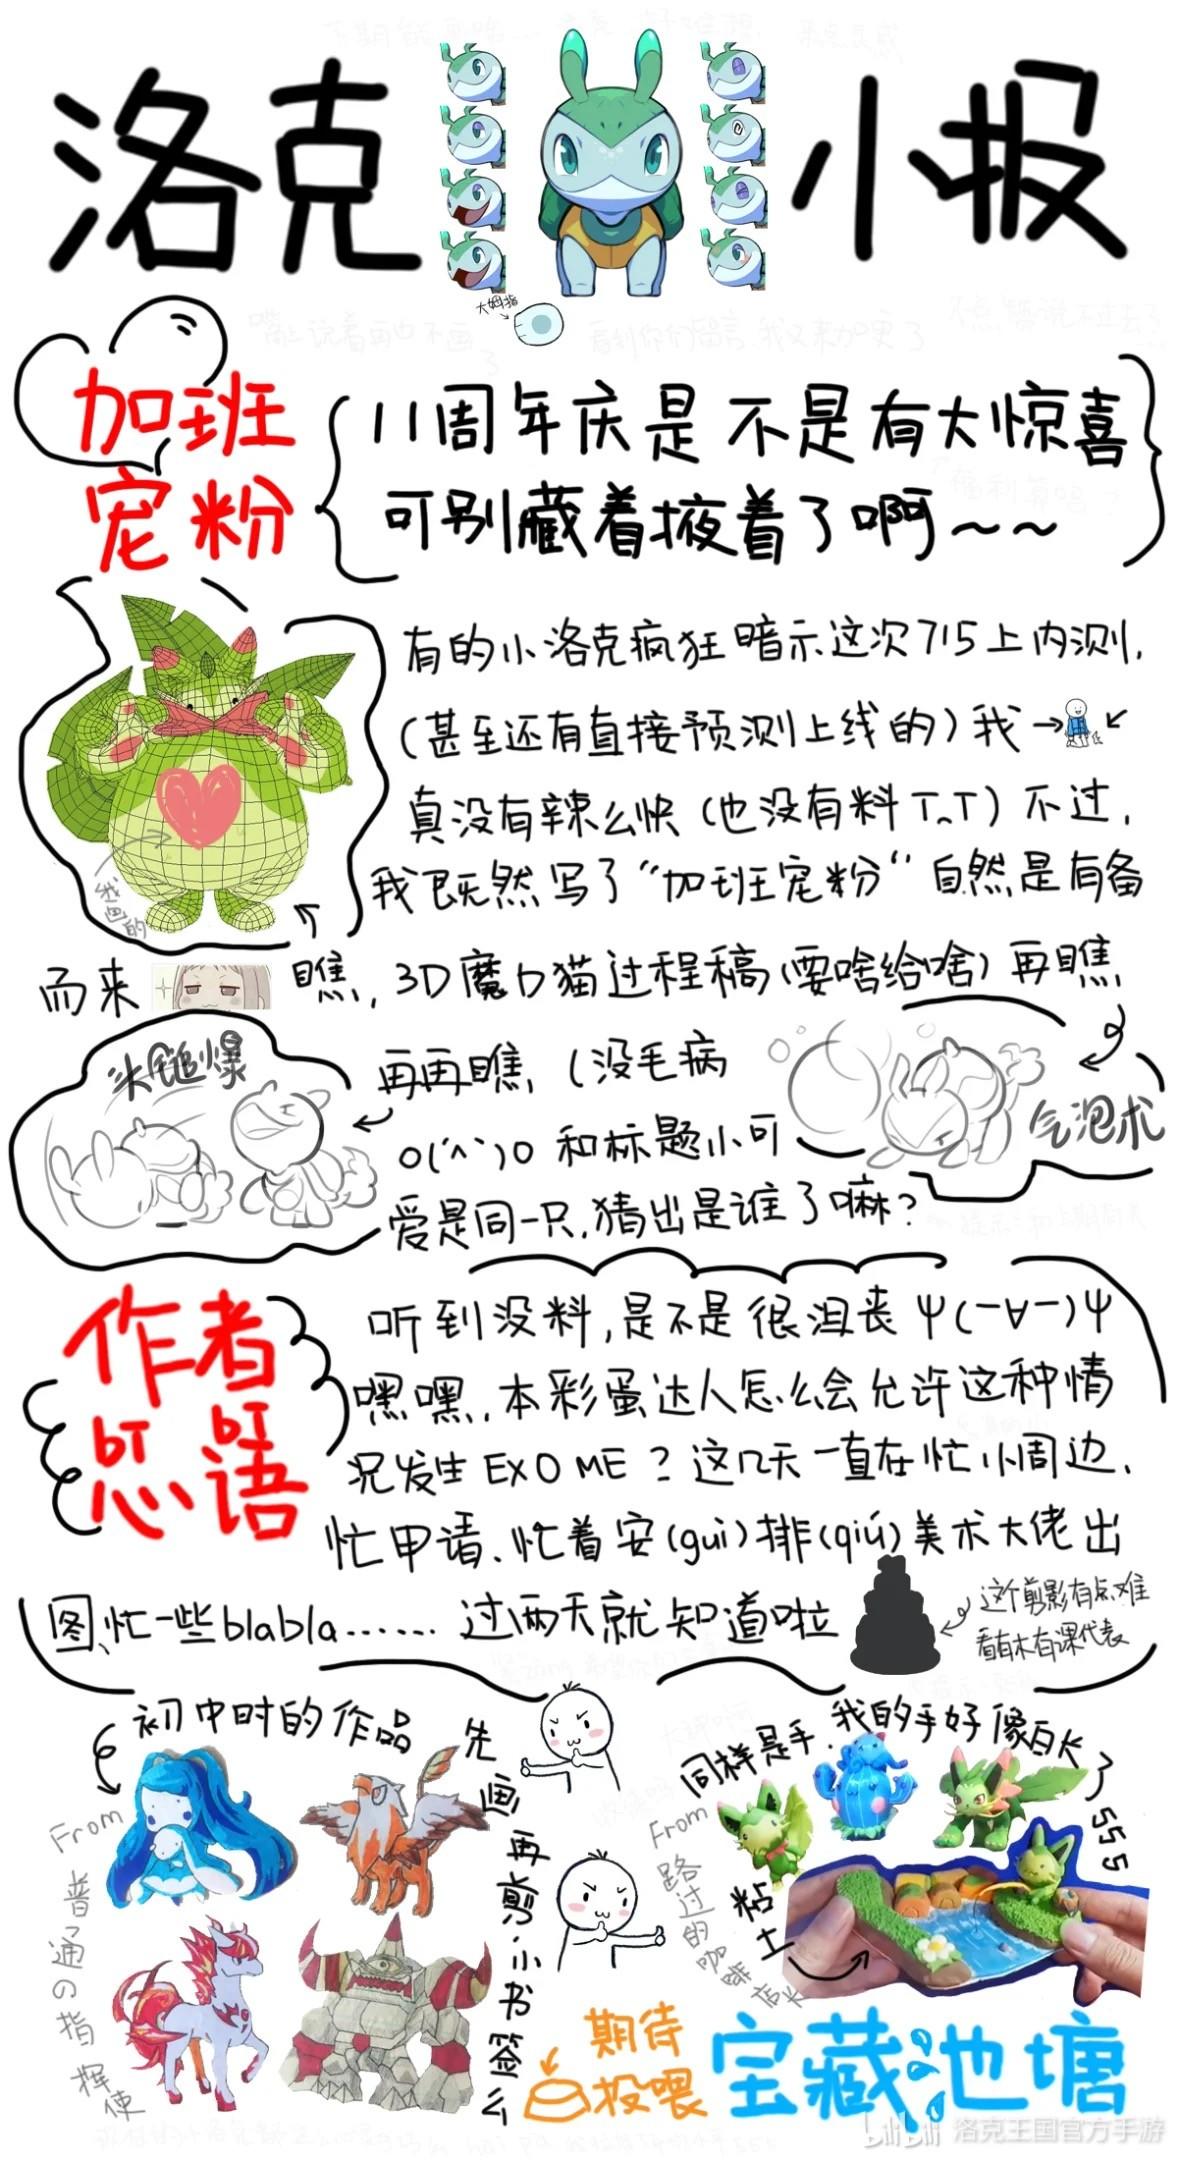 洛克小报
大姆指
加班
宠粉
11周年庆是不是有大惊喜
可别藏着掖着了啊~~
有的小洛克疯狂暗示这次715上内测,
(甚至还有直接预测上线的)我
真没有辣么快(也没有料T~T)不过,
我既然写了“加班宠粉”自然是有备
我画的
而来 瞧,3D魔力猫过程稿(要啥给啥)再瞧
头鎚爆
再再瞧 (没毛病
气泡术
o(^^)o 和标题小可
爱是同一只,猜出是谁了嘛?
作者
怹语
听到没料,是不是很沮丧Ψ(-∀-)Ψ
嘿嘿,本彩蛋达人怎么会允许这种情
况发生EXO ME?这几天一直在忙小周边、
忙申请、忙着安(guì)排(qiú)美术大佬出
图、忙一些blabla…… 过两天就知道啦
这个剪影有点难
看有木有课代表
初中时的作品
From 普通の指挥使
先画再剪,小书签么
同样是手,我的手好像白长了555
From 路过的咖啡店长
粘土
期待
投喂
宝藏池塘
bilibili 洛克王国官方手游